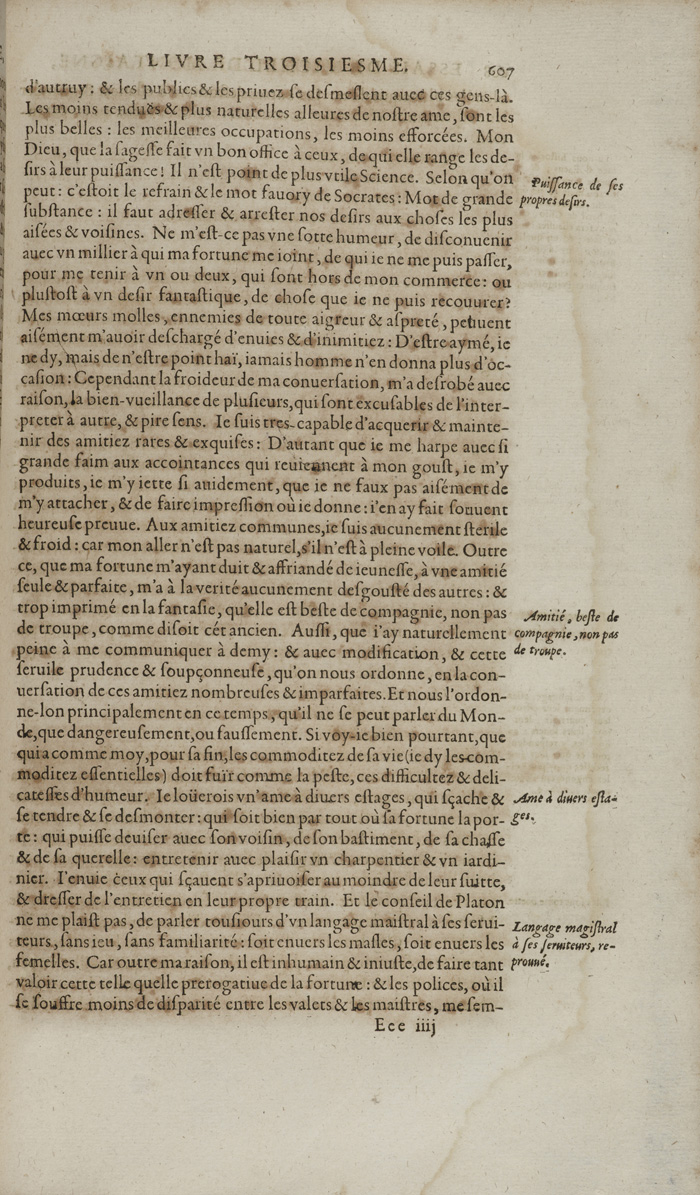 LIVRE TROISIESME.
607
d'autruy : & les publics & les priuez se desmeslent auec ces gens-là.
Les moins tenduës & plus naturelles alleures de nostre ame, sont les
plus belles : les meilleures occupations, les moins efforcées. Mon
Dieu, que la sagesse fait vn bon office à ceux, de qui elle range les de-
sirs à leur puissance ! Il n'est point de plus vtile Science. Selon qu'on
peut : c'estoit le refrain & le mot fauory de Socrates : Mot de grande
substance : il faut adresser & arrester nos desirs aux choses les plus
aisées & voisines. Ne m'est-ce pas vne sotte humeur, de disconuenir
auec vn millier à qui ma fortune me ioint, de qui ie ne me puis passer,
pour me tenir à vn ou deux, qui sont hors de mon commerce : ou
plustost à vn desir fantastique, de chose que ie ne puis recouurer ?
Mes mœurs molles, ennemies de toute aigreur & aspreté, peuuent
aisément m'auoir deschargé d'enuies & d'inimitiez : D'estre aymé, ie
ne dy, mais de n'estre point haï, iamais homme n'en donna plus d'oc-
casion : Cependant la froideur de ma conuersation, m'a desrobé auec
raison, la bien-vueillance de plusieurs, qui sont excusables de l'inter-
preter à autre, & pire sens. Ie suis tres-capable d'acquerir & mainte-
nir des amitiez rares & exquises : D'autant que ie me harpe auec si
grande faim aux accointances qui reuiennent à mon goust, ie m'y
produits, ie m'y iette si auidement, que ie ne faux pas aisément de
m'y attacher, & de faire impression où ie donne : i'en ay fait souuent
heureuse preuue. Aux amitiez communes, ie suis aucunement sterile
& froid : car mon aller n'est pas naturel, s'il n'est à pleine voile. Outre
ce, que ma fortune m'ayant duit & affriandé de ieunesse, à vne amitié
seule & parfaite, m'a à la verité aucunement desgousté des autres : &
trop imprimé en la fantasie, qu'elle est beste de compagnie, non pas
de troupe, comme disoit cét ancien. Aussi, que i'ay naturellement
peine à me communiquer à demy : & auec modification, & cette
seruile prudence & soupçonneuse, qu'on nous ordonne, en la con-
uersation de ces amitiez nombreuses & imparfaites. Et nous l'ordon-
ne-lon principalement en ce temps, qu'il ne se peut parler du Mon-
de, que dangereusement, ou faussement. Si voy-ie bien pourtant, que
qui a comme moy, pour sa fin, les commoditez de sa vie (ie dy les com-
moditez essentielles) doit fuïr comme la peste, ces difficultez & deli-
catesses d'humeur. Ie loüerois vn'ame à diuers estages, qui sçache &
se tendre & se desmonter : qui soit bien par tout où sa fortune la por-
te : qui puisse deuiser auec son voisin, de son bastiment, de sa chasse
& de sa querelle : entretenir auec plaisir vn charpentier & vn iardi-
nier. I'enuie ceux qui sçauent s'apriuoiser au moindre de leur suitte,
& dresser de l'entretien en leur propre train. Et le conseil de Platon
ne me plaist pas, de parler tousiours d'vn langage maistral à ses serui-
teurs, sans ieu, sans familiarité : soit enuers les masles, soit enuers les
femelles. Car outre ma raison, il est inhumain & iniuste, de faire tant
valoir cette telle quelle prerogatiue de la fortune : & les polices, où il
se souffre moins de disparité entre les valets & les maistres, me sem-
Eee iiij
Puissance de ses
propres desirs.
Amitié, beste de
compagnie, non pas
de troupe.
Ame à diuers esta-
ges.
Langage magistral
à ses seruiteurs, re-
prouué.